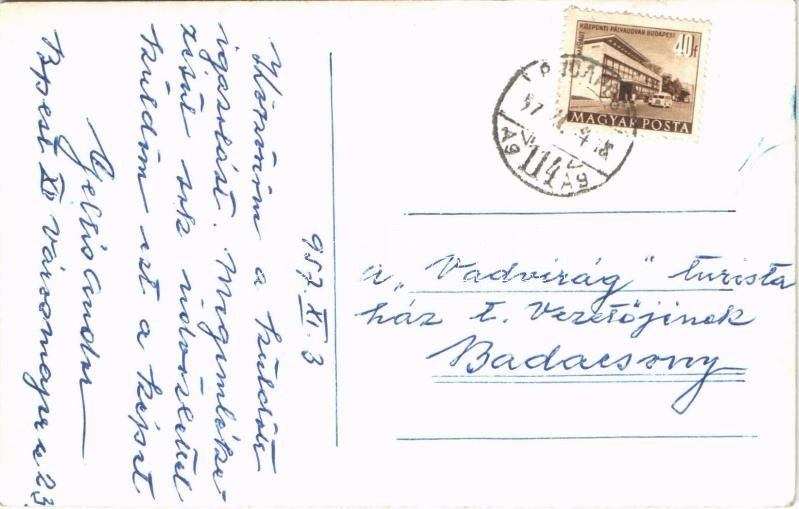 957. XI. 3
Köszönöm a küldött
igazolást. Megemléke-
zésül sok üdvözlettel
küldöm ezt a képet.
Bpest XII. Városmajor u 23.
KÖZPONTI PÁLYAUDVAR BUDAPEST
40f
MAGYAR POSTA
57 XI. 4
114
a „Vadvirág" turista
ház t. Vezetőjének
Badacsony